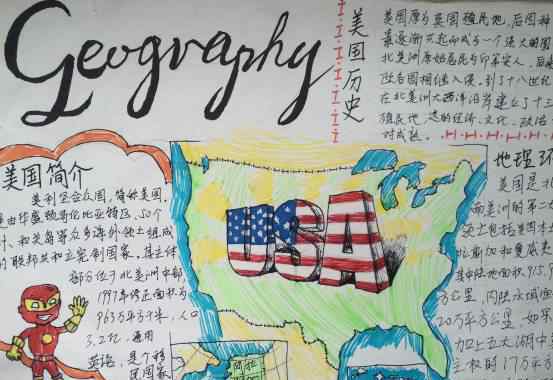 Geography
美国历史
美国原为英国殖民地,后因种
北美洲原始居民为印第安人,
欧各国相继入侵,到了十八世纪
在北美洲大西洋沿岸建立了十三
殖民地,
的经济、文化、政治
对成熟。
美国简介
美利坚合众国,简称美国,
是由华盛顿哥伦比亚特区、50个
州、和关岛等众多海外领土组成
的联邦共和立宪制国家。其主体
部分位于北美洲中部
1997年修正面积为
963万平方千米,人口
3.2亿,通用
英语,是个移
民国家
USA
阿拉
地理环
美国是北
南美洲的第二
领土包括美国本土
拉斯加和夏威夷
其中陆地面积915.
万公里,内陆水域面
20万平方公里,如果
加上五大湖中
主权时17万平